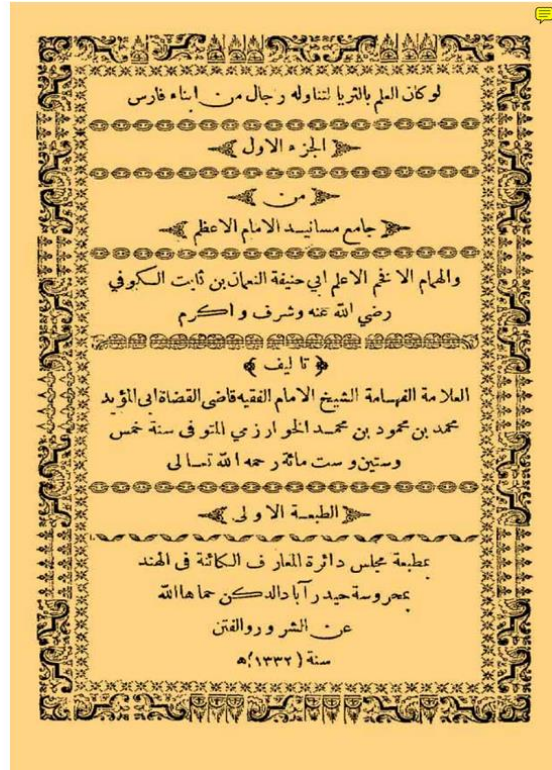 لو كان العلم بالثريا لتناوله رجال من ابناء فارس
الجزء الاول
من
جامع مسانيد الامام الاعظم
والهمام الافخم الاعلم ابي حنيفة النعمان بن ثابت الكوفي
رضي الله عنه وشرف واكرم
تاليف
العلامة الفهامة الشيخ الامام الفقيه قاضى القضاة ابى المؤيد
محمد بن محمود بن محمد الخوارزمي المتوفى سنة خمس
وستين وست مائة رحمه الله تعالى
الطبعة الاولى
بمطبعة مجلس دائرة المعارف الكائنة فى الهند
بمحروسة حيدرآباد الدكن حماها الله
عن الشرور والفتن
سنة (١٣٣٢) ه